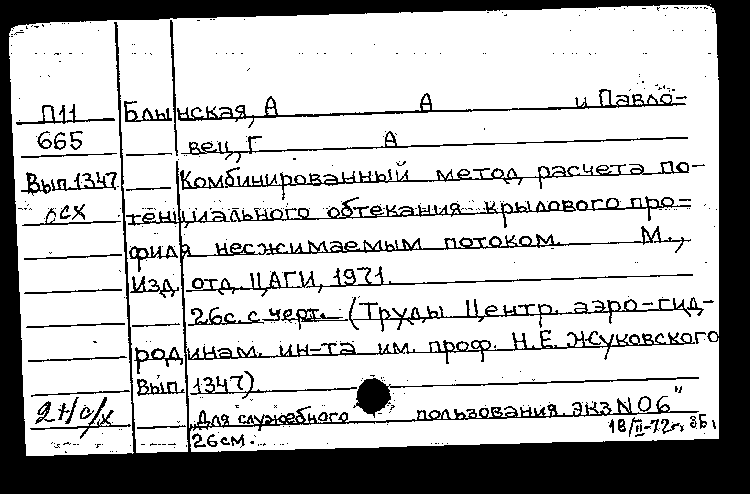 П11 Блынская, А А и Павло-
665 вец, Г А
Вып.1347 Комбинированный метод расчета по-
осх тенциального обтекания крылового про=
филя несжимаемым потоком. М.,
Изд. отд. ЦАГИ, 1971.
26с. с черт. (Труды Центр. аэро-гид-
родинам. ин-та им. проф. Н.Е. Жуковского
Вып. 1347).
„Для служебного пользования. экз N 06"
26см. 18/II-72г.